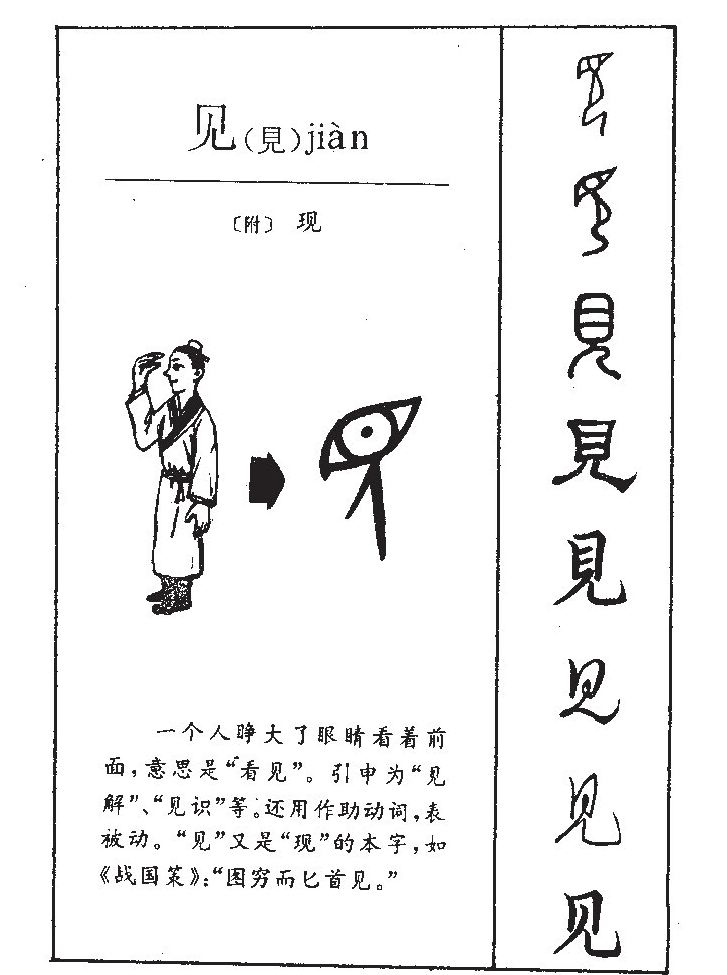 见(見)jiàn
〔附〕 现
一个人睁大了眼睛看着前
面，意思是“看见”。引申为“见
解”、“见识”等。还用作助动词，表
被动。“见”又是“现”的本字，如
《战国策》：“图穷而匕首见。”
見
見
見
見
見
见
见
见